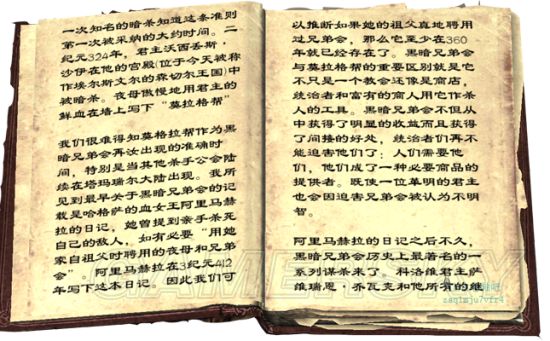 一次知名的暗杀知道这条准则
第一次被采纳的大约时间。二
纪元324年，君主沃西丢斯·
沙伊在他的宫殿(位于今天被称
作埃尔斯文尔的森切尔王国)中
被暗杀。夜母傲慢地用君主的
鲜血在墙上写下“莫拉格帮”
我们很难得知莫格拉帮作为黑
暗兄弟会再次出现的准确时
间，特别是当其他杀手公会陆
续在塔玛瑞尔大陆出现。我所
见到最早关于黑暗兄弟会的记
载是哈格萨的血女王阿里马赫
拉的日记，她曾提到亲手杀死
自己的敌人，如有必要“用她
家自祖父时聘用的夜母和兄弟
会”。阿里马赫拉在3纪元412
年写下这本日记。因此我们可
以推断如果她的祖父真地聘用
过兄弟会，那么它至少在360
年就已经存在了。黑暗兄弟会
与莫拉格帮的重要区别就是它
不只是一个教会还像是商店，
统治者和富有的商人用它作杀
人的工具。黑暗兄弟会不但从
中获得了明显的收益而且获得
了间接的好处，统治者们再不
能迫害他们了：人们需要他
们，他们成了一种必要商品的
提供者。既使一位革明的君主
也会因迫害兄弟会被认为不明
智。
阿里马赫拉的日记之后不久，
黑暗兄弟会历史上最著名的一
系列谋杀来了。科洛维君主萨
维瑞恩·乔瓦克和他所有的继
GAMERSKY
zaq1mju7vfr4